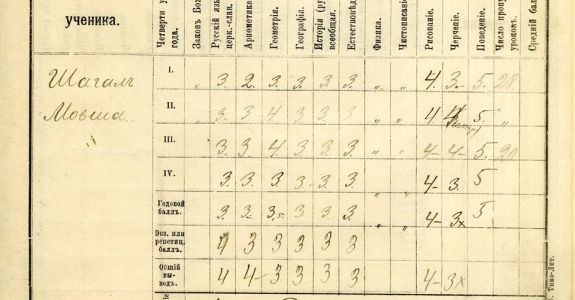 ученика.
Четверти у
года.
Законъ Бож
Русскій язы
церк.-слав.
Ариѳметика
Геометрія.
Географія.
Исторія (ру
всеобщая.
Естествовѣд
Физика.
Чистописаніе
Рисованіе.
Черченіе.
Поведеніе.
Число пропу
уроковъ.
Средній бал
Шагалъ
Мовша
I. „ 3. 2. 3. 3. 3. 3. „ „ 4. 3. 5. 20.
II. „ 3. 3 4 3. 3 3. „ „ 4 4 5. „
III. 3. 3. 4 3. 3. 3. „ „ 4 4 5. 20
IV. 3. 3. 3. 3. 3. 3. 4 3. 5
Годовой
баллъ.
3. 3. 3. 3. 3. 3. 4 3x 5
Экз. или
репетиц.
баллъ.
4 3 3 3 3 3
Общій
вы-
водъ.
4 4 3 3 3 3 4 3x
Типо-Лит.